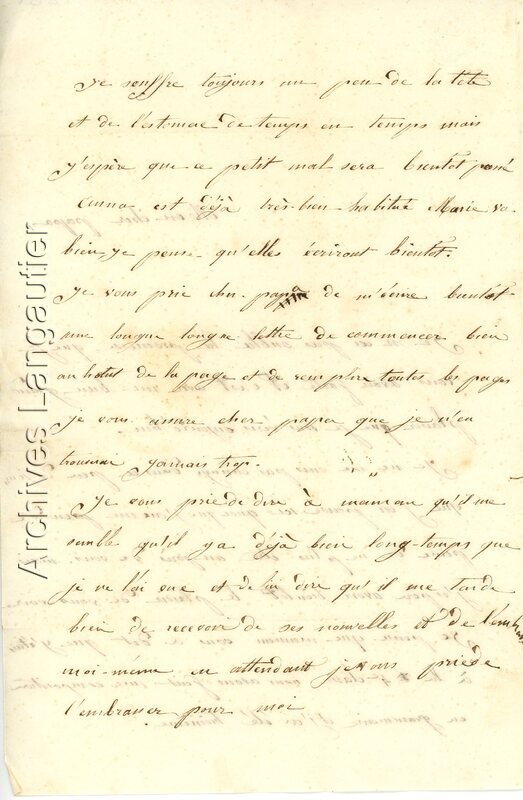 je souffre toujours un peu de la tete
et de l'estomac de temps en temps mais
j'espère que ce petit mal sera bientot passé
Anna est déjà très-bien habitué Marie va
bien je pense qu'elles écriront bientot.
Je vous prie cher papa de m'écrire bientot
une longue longue lettre de commencer bien
au hatut de la page et de remplire toutes les pages
je vous assure cher papa que je n'en
trouverai jamais trop.
Je vous prie de dire à maman qu'il me
semble qu'il y a déjà bien long-temps que
je ne l'ai vue et de lui dire qu'il me tarde
bien de recevoir de ses nouvelles et de l'embrasser
moi-même en attendant je vous prie de
l'embrasser pour moi
Archives Langautier